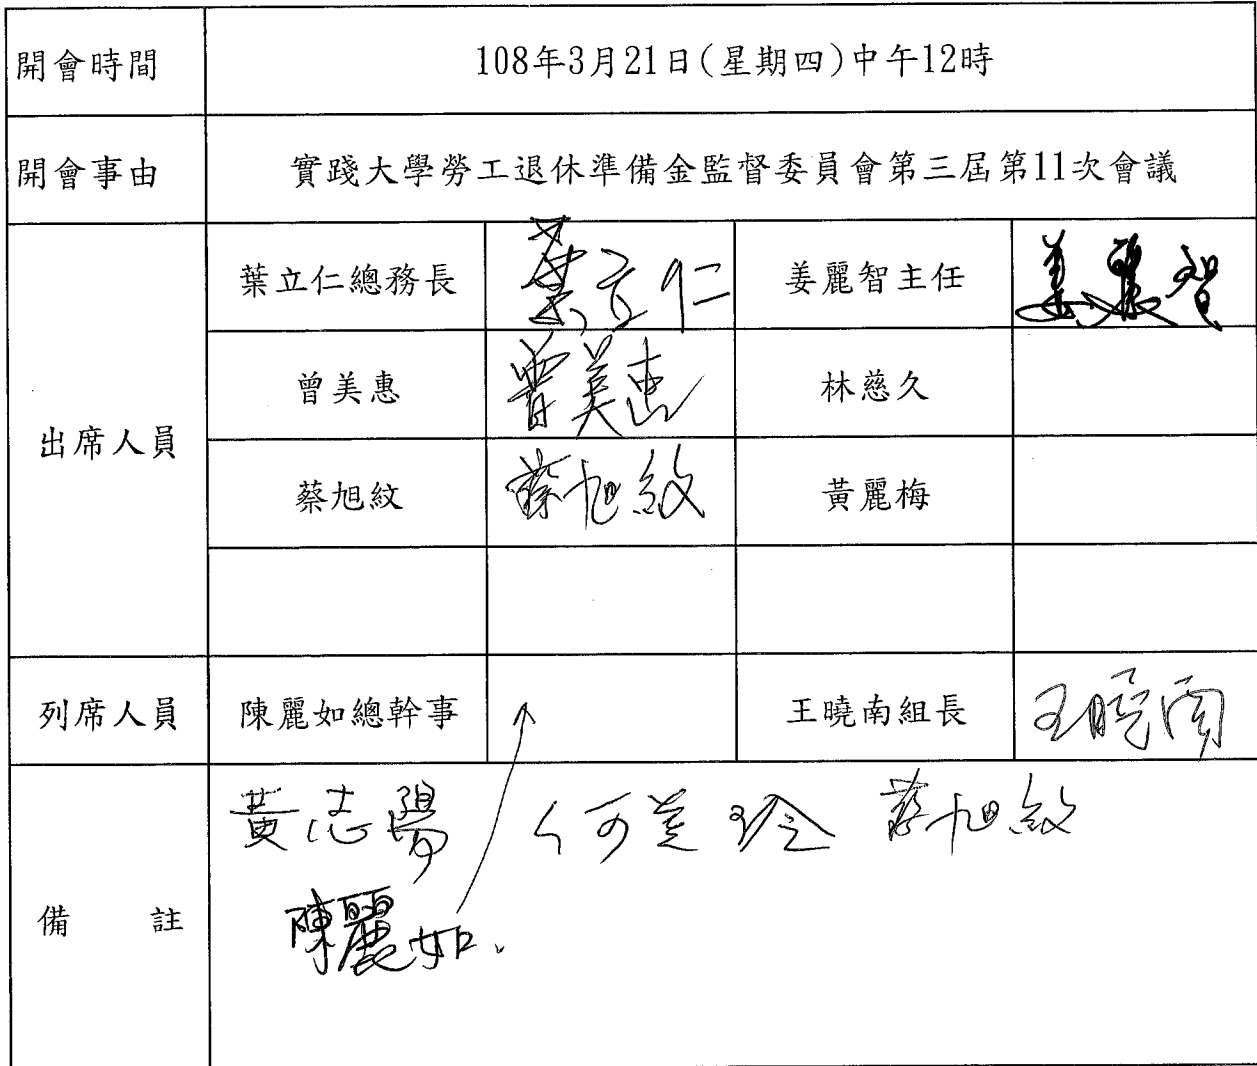 開會時間 108年3月21日(星期四)中午12時
開會事由 實踐大學勞工退休準備金監督委員會第三屆第11次會議
出席人員
葉立仁總務長 葉立仁 姜麗智主任 姜麗智
曾美惠 曾美惠 林慈久
蔡旭紋 蔡旭紋 黃麗梅
列席人員 陳麗如總幹事 王曉南組長 王曉南
備 註
黃志陽 何美玲 蔡旭紋
陳麗如